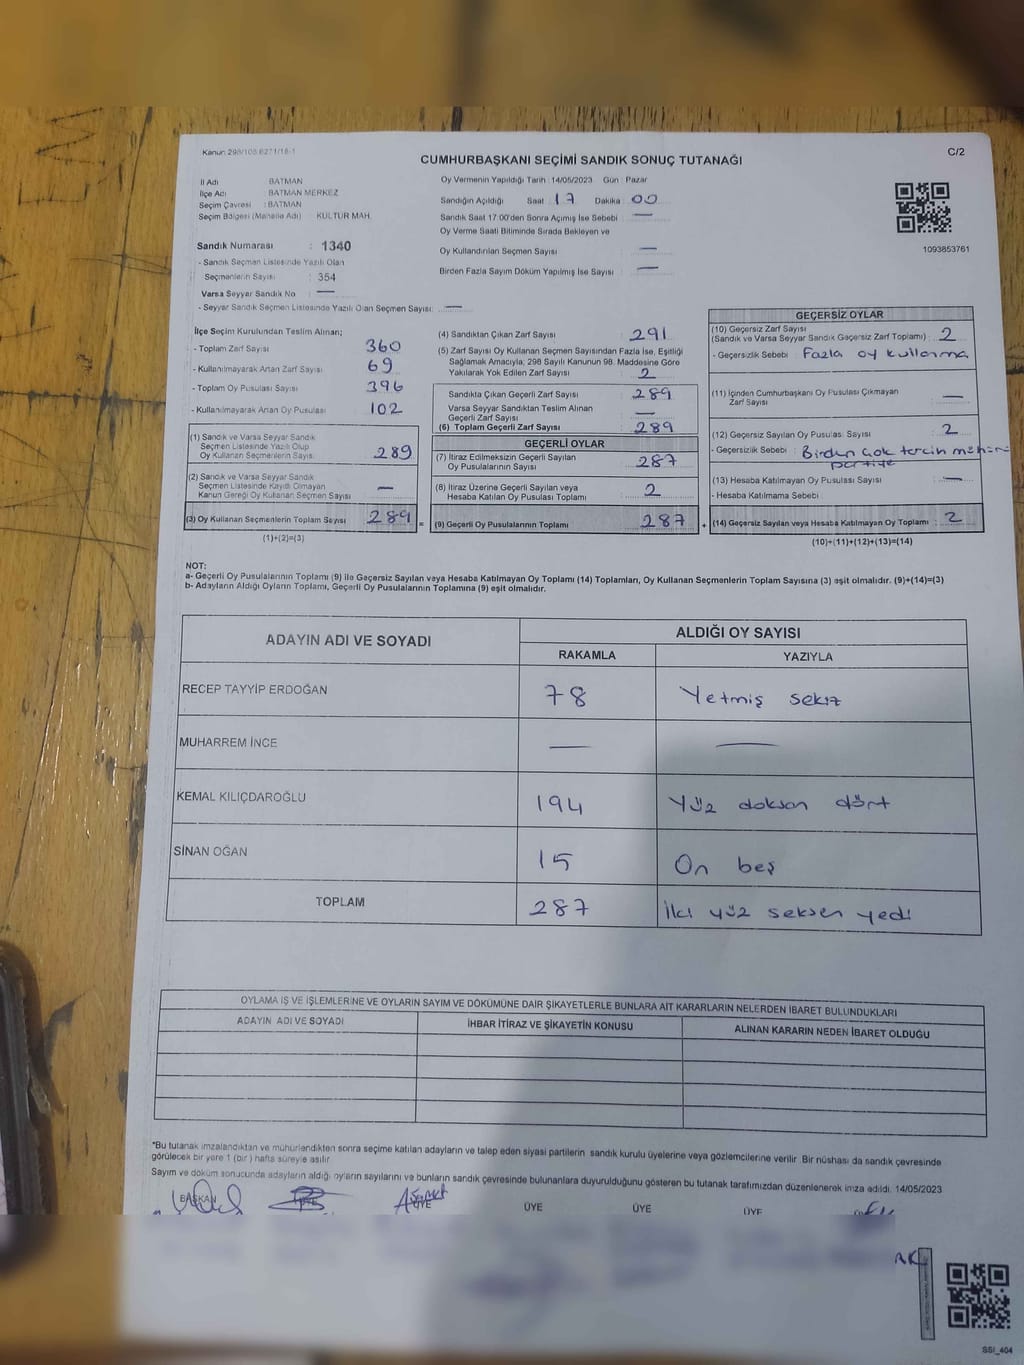 Kanun: 298/105 6271/18-1
CUMHURBAŞKANI SEÇİMİ SANDIK SONUÇ TUTANAĞI
C/2
İl Adı : BATMAN
İlçe Adı : BATMAN MERKEZ
Seçim Çevresi : BATMAN
Seçim Bölgesi (Mahalle Adı) : KÜLTÜR MAH.
Oy Vermenin Yapıldığı Tarih : 14/05/2023 Gün : Pazar
Sandığın Açıldığı Saat : 17 Dakika : 00
Sandık Saat 17:00'den Sonra Açımış İse Sebebi : —
Oy Verme Saati Bitiminde Sırada Bekleyen ve
Oy Kullandırılan Seçmen Sayısı : —
Birden Fazla Sayım Döküm Yapılmış İse Sayısı : —
1093853761
Sandık Numarası : 1340
- Sandık Seçmen Listesinde Yazılı Olan
Seçmenlerin Sayısı : 354
Varsa Seyyar Sandık No : —
- Seyyar Sandık Seçmen Listesinde Yazılı Olan Seçmen Sayısı: —
İlçe Seçim Kurulundan Teslim Alınan;
- Toplam Zarf Sayısı : 360
- Kullanılmayarak Artan Zarf Sayısı : 69
- Toplam Oy Pusulası Sayısı : 396
- Kullanılmayarak Artan Oy Pusulası : 102
(1) Sandık ve Varsa Seyyar Sandık
Seçmen Listesinde Yazılı Olup
Oy Kullanan Seçmenlerin Sayısı : 289
(2) Sandık ve Varsa Seyyar Sandık
Seçmen Listesinde Kayıtlı Olmayan
Kanun Gereği Oy Kullanan Seçmen Sayısı : —
(3) Oy Kullanan Seçmenlerin Toplam Sayısı : 289
(1)+(2)=(3)
(4) Sandıktan Çıkan Zarf Sayısı : 291
(5) Zarf Sayısı Oy Kullanan Seçmen Sayısından Fazla İse, Eşitliği
Sağlamak Amacıyla, 298 Sayılı Kanunun 98. Maddesine Göre
Yakılarak Yok Edilen Zarf Sayısı : 2
Sandıkta Çıkan Geçerli Zarf Sayısı : 289
Varsa Seyyar Sandıktan Teslim Alınan
Geçerli Zarf Sayısı : —
(6) Toplam Geçerli Zarf Sayısı : 289
GEÇERLİ OYLAR
(7) İtiraz Edilmeksizin Geçerli Sayılan
Oy Pusulalarının Sayısı : 287
(8) İtiraz Üzerine Geçerli Sayılan veya
Hesaba Katılan Oy Pusulası Toplamı : 2
(9) Geçerli Oy Pusulalarının Toplamı : 287
GEÇERSİZ OYLAR
(10) Geçersiz Zarf Sayısı
(Sandık ve Varsa Seyyar Sandık Geçersiz Zarf Toplamı) : 2
- Geçersizlik Sebebi : Fazla oy kullanma
(11) İçinden Cumhurbaşkanı Oy Pusulası Çıkmayan
Zarf Sayısı : —
(12) Geçersiz Sayılan Oy Pusulası Sayısı : 2
- Geçersizlik Sebebi : Birden çok tercih
(13) Hesaba Katılmayan Oy Pusulası Sayısı : —
- Hesaba Katılmama Sebebi :
(14) Geçersiz Sayılan veya Hesaba Katılmayan Oy Toplamı : 2
(10)+(11)+(12)+(13)=(14)
NOT:
a- Geçerli Oy Pusulalarının Toplamı (9) ile Geçersiz Sayılan veya Hesaba Katılmayan Oy Toplamı (14) Toplamları, Oy Kullanan Seçmenlerin Toplam Sayısına (3) eşit olmalıdır. (9)+(14)=(3)
b- Adayların Aldığı Oyların Toplamı, Geçerli Oy Pusulalarının Toplamına (9) eşit olmalıdır.
ADAYIN ADI VE SOYADI ALDIĞI OY SAYISI
RAKAMLA YAZIYLA
RECEP TAYYİP ERDOĞAN 78 Yetmiş sekiz
MUHARREM İNCE — —
KEMAL KILIÇDAROĞLU 194 Yüz doksan dört
SİNAN OĞAN 15 On beş
TOPLAM 287 İki yüz seksen yedi
OYLAMA İŞ VE İŞLEMLERİNE VE OYLARIN SAYIM VE DÖKÜMÜNE DAİR ŞİKAYETLERLE BUNLARA AİT KARARLARIN NELERDEN İBARET BULUNDUKLARI
ADAYIN ADI VE SOYADI İHBAR İTİRAZ VE ŞİKAYETİN KONUSU ALINAN KARARIN NEDEN İBARET OLDUĞU
"Bu tutanak imzalandıktan ve mühürlendikten sonra seçime katılan adayların ve talep eden siyasi partilerin sandık kurulu üyelerine veya gözlemcilerine verilir. Bir nüshası da sandık çevresinde
görülecek bir yere 1 (bir) hafta süreyle asılır.
Sayım ve döküm sonucunda adayların aldığı oyların sayılarını ve bunların sandık çevresinde bulunanlara duyurulduğunu gösteren bu tutanak tarafımızdan düzenlenerek imza edildi. 14/05/2023
BAŞKAN ÜYE ÜYE ÜYE ÜYE ÜYE
SSI_404